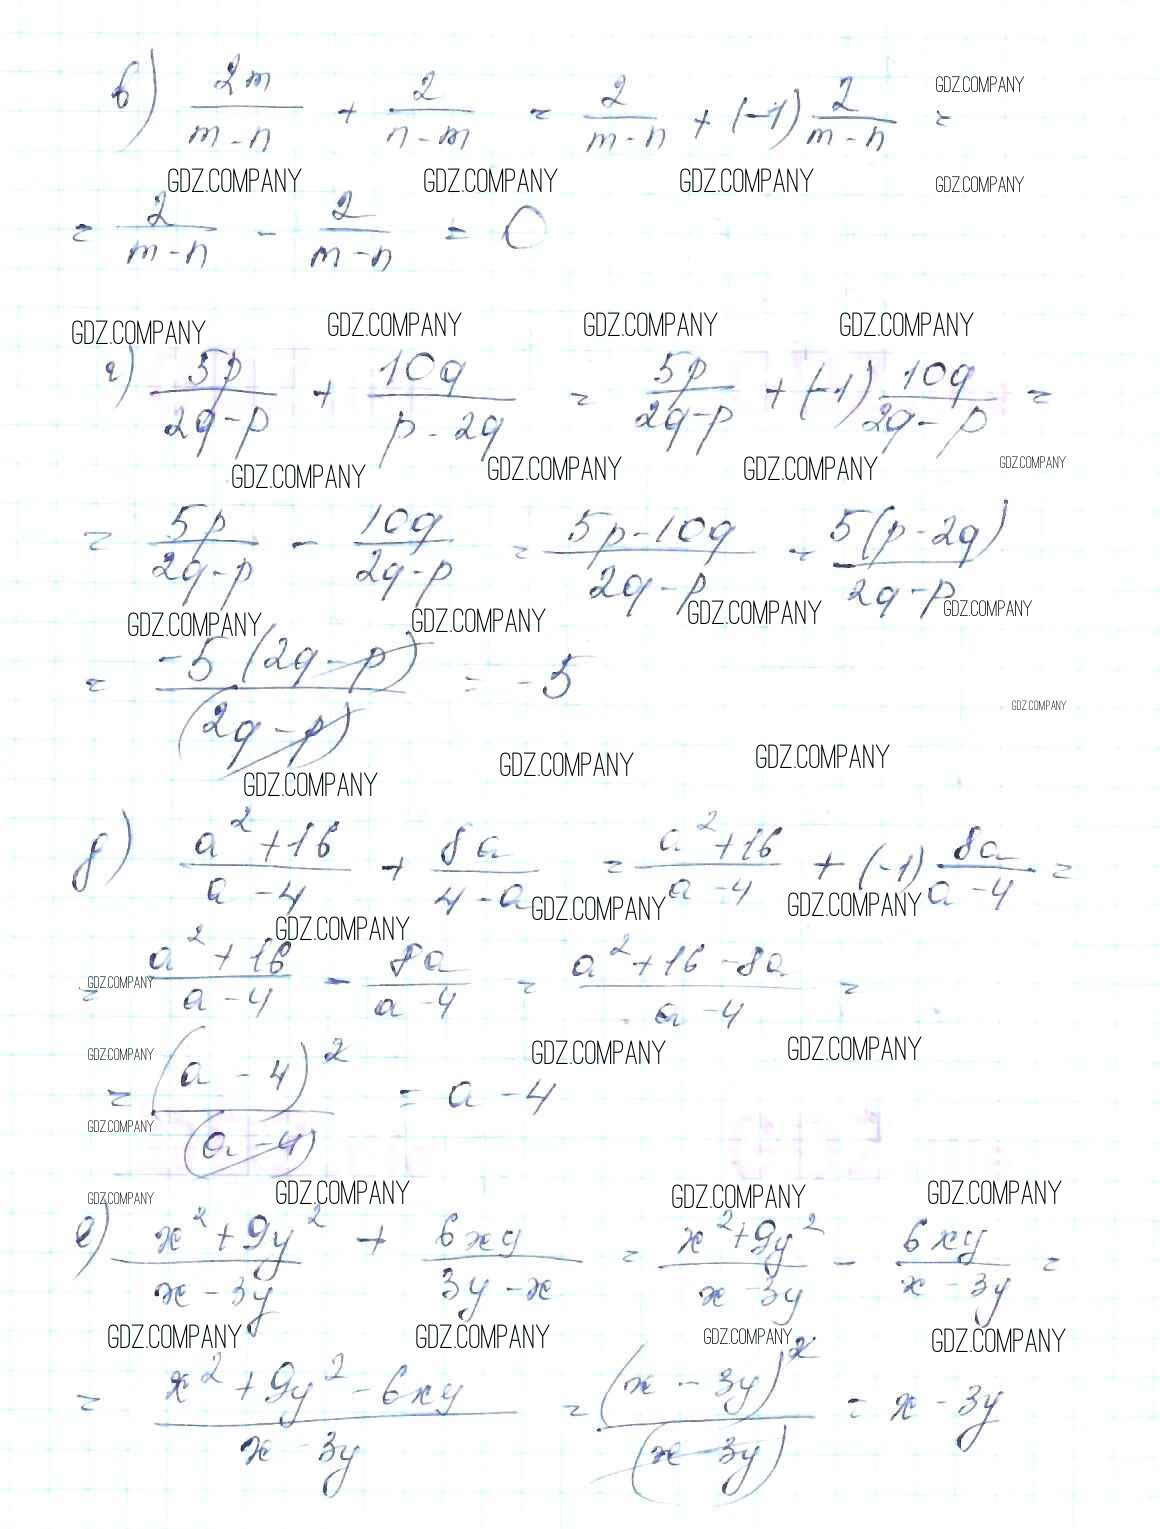 в) \frac{2m}{m-n} + \frac{2}{n-m} = \frac{2}{m-n} + (-1) \frac{2}{m-n} =
GDZ.COMPANY
GDZ.COMPANY GDZ.COMPANY GDZ.COMPANY GDZ.COMPANY
= \frac{2}{m-n} - \frac{2}{m-n} = 0
GDZ.COMPANY GDZ.COMPANY GDZ.COMPANY GDZ.COMPANY
г) \frac{5p}{2q-p} + \frac{10q}{p-2q} = \frac{5p}{2q-p} + (-1) \frac{10q}{2q-p} =
GDZ.COMPANY GDZ.COMPANY GDZ.COMPANY GDZ.COMPANY
= \frac{5p}{2q-p} - \frac{10q}{2q-p} = \frac{5p-10q}{2q-p} = \frac{5(p-2q)}{2q-p}
GDZ.COMPANY GDZ.COMPANY GDZ.COMPANY GDZ.COMPANY
= \frac{-5(2q-p)}{(2q-p)} = -5
GDZ.COMPANY
GDZ.COMPANY GDZ.COMPANY GDZ.COMPANY
д) \frac{a^2+16}{a-4} + \frac{8a}{4-a} = \frac{a^2+16}{a-4} + (-1) \frac{8a}{a-4} =
GDZ.COMPANY GDZ.COMPANY GDZ.COMPANY
= \frac{a^2+16}{a-4} - \frac{8a}{a-4} = \frac{a^2+16-8a}{a-4} =
GDZ.COMPANY
GDZ.COMPANY GDZ.COMPANY GDZ.COMPANY
= \frac{(a-4)^2}{(a-4)} = a-4
GDZ.COMPANY
GDZ.COMPANY GDZ.COMPANY GDZ.COMPANY GDZ.COMPANY
е) \frac{x^2+9y^2}{x-3y} + \frac{6xy}{3y-x} = \frac{x^2+9y^2}{x-3y} - \frac{6xy}{x-3y} =
GDZ.COMPANY GDZ.COMPANY GDZ.COMPANY GDZ.COMPANY
= \frac{x^2+9y^2-6xy}{x-3y} = \frac{(x-3y)^2}{(x-3y)} = x-3y